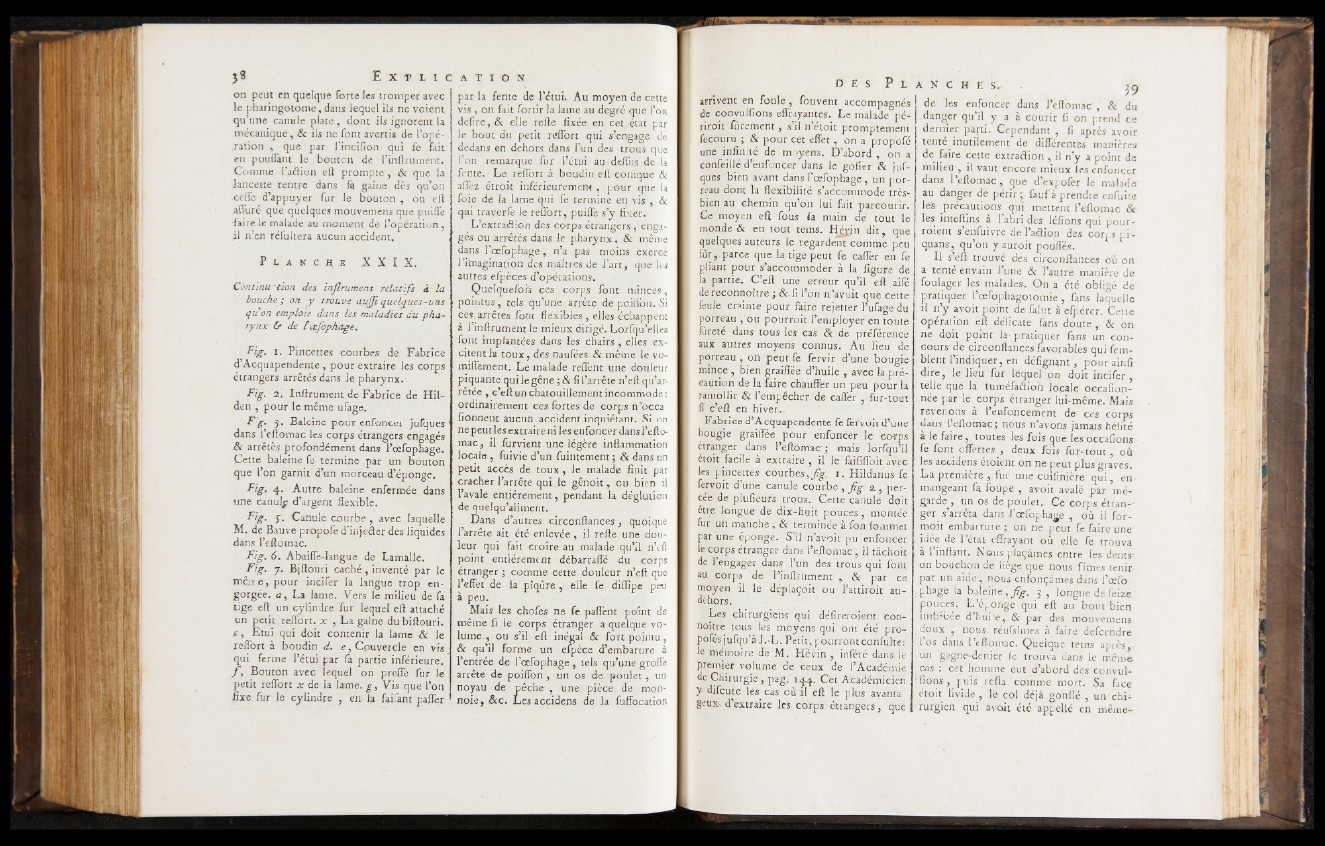 38 EXPLICATION
on peut en quelque ſorte les tromper avec
le pharingotome, dans lequel ils ne voient
qu'une canule plate, dont ils ignorent la
mécanique, & ils ne ſont avertis de l'opé-
ration, que par l'inciſion qui ſe fait
en pouſſant le bouton de l'inſtrument.
Comme l'action eſt prompte, & que la
lancette rentre dans ſa gaîne dès qu'on
ceſſe d'appuyer ſur le bouton, on eſt
aſſuré que quelques mouvemens que puiſſe
faire le malade au moment de l'opération,
il n'en réſultera aucun accident.
PLANCHE XXIX.
Continuation des inſtrumens relatifs à la
bouche ; on y trouve auſſi quelques-uns
qu'on emploie dans les maladies du pha-
rynx & de l'œſophage.
Fig. 1. Pincettes courbes de Fabrice
d'Acquapendente, pour extraire les corps
étrangers arrêtés dans le pharynx.
Fig. 2. Inſtrument de Fabrice de Hil-
den, pour le même uſage.
Fig. 3. Baleine pour enfoncer juſques
dans l'eſtomac les corps étrangers engagés
& arrêtés profondément dans l'œſophage.
Cette baleine ſe termine par un bouton
que l'on garnit d'un morceau d'éponge.
Fig. 4. Autre baleine enfermée dans
une canule d'argent flexible.
Fig. 5. Canule courbe, avec laquelle
M. de Bauve propoſe d'injecter des liquides
dans l'eſtomac.
Fig. 6. Abaiſſe-langue de Lamalle.
Fig. 7. Biſtouri caché, inventé par le
même, pour inciſer la langue trop en-
gorgée. a, La lame. Vers le milieu de ſa
tige eſt un cylindre ſur lequel eſt attaché
un petit reſſort. x, La gaîne du biſtouri.
c, Etui qui doit contenir la lame & le
reſſort à boudin d. e, Couvercle en vis
qui ferme l'étui par ſa partie inférieure.
f, Bouton avec lequel on preſſe ſur le
petit reſſort x de la lame. g, Vis que l'on
fixe ſur le cylindre, en la faiſant paſſer
par la fente de l'étui. Au moyen de cette
vis, on fait ſortir la lame au degré que l'on
deſire, & elle reſte fixée en cet état par
le bout du petit reſſort qui s'engage de
dedans en dehors dans l'un des trous que
l'on remarque ſur l'étui au-deſſus de la
fente. Le reſſort à boudin eſt conique &
aſſez étroit inférieurement, pour que la
ſoie de la lame qui ſe termine en vis, &
qui traverſe le reſſort, puiſſe s'y fixer.
L'extraction des corps étrangers, enga-
gés ou arrêtés dans le pharynx, & même
dans l'œſophage, n'a pas moins exercé
l'imagination des maîtres de l'art, que les
autres eſpèces d'opérations.
Quelquefois ces corps ſont minces,
pointus, tels qu'une arrête de poiſſon. Si
ces arrêtes ſont flexibles, elles échappent
à l'inſtrument le mieux dirigé. Lorſqu'elles
ſont implantées dans les chairs, elles ex-
citent la toux, des nauſées & même le vo-
miſſement. Le malade reſſent une douleur
piquante qui le gêne ; & ſi l'arrête n'eſt qu'ar-
rêtée, c'eſt un chatouillement incommode:
ordinairement ces ſortes de corps n'occa-
ſionnent aucun accident inquiétant. Si on
ne peut les extraire ni les enfoncer dans l'eſto-
mac, il ſurvient une légère inflammation
locale, ſuivie d'un ſuintement ; & dans un
petit accès de toux, le malade finit par
cracher l'arrête qui le gênoit, ou bien il
l'avale entiérement, pendant la déglution
de quelqu'aliment.
Dans d'autres circonſtances, quoique
l'arrête ait été enlevée, il reſte une dou-
leur qui fait croire au malade qu'il n'eſt
point entiérement débarraſſé du corps
étranger ; comme cette douleur n'eſt que
l'effet de la piqûre, elle ſe diſſipe peu
à peu.
Mais les choſes ne ſe paſſent point de
même ſi le corps étranger a quelque vo-
lume, ou s'il eſt inégal & fort pointu,
& qu'il forme un eſpèce d'embarure à
l'entrée de l'œſophage, tels qu'une groſſe
arrête de poiſſon, un os de poulet, un
noyau de pêche, une pièce de mon-
noie, &c. Les accidens de la ſuffocation
DES PLANCHES. 39
arrivent en foule, ſouvent accompagnés
de convulſions effrayantes. Le malade pé-
riroit ſûrement, s'il n'étoit promptement
ſecouru ; & pour cet effet, on a propoſé
une infinité de moyens. D'abord, on a
conſeillé d'enfoncer dans le goſier & juſ-
ques bien avant dans l'œſophage, un por-
reau dont la flexibilité s'accommode très-
bien au chemin qu'on lui fait parcourir.
Ce moyen eſt ſous la main de tout le
monde & en tout tems. Hévin dit, que
quelques auteurs le regardent comme peu
ſûr, parce que la tige peut ſe caſſer en ſe
pliant pour s'accommoder à la figure de
la partie. C'eſt une erreur qu'il eſt aiſé
de reconnoître ; & ſi l'on n'avoit que cette
ſeule crainte pour faire rejetter l'uſage du
porreau, on pourroit l'employer en toute
ſûreté dans tous les cas & de préférence
aux autres moyens connus. Au lieu de
porreau, on peut ſe ſervir d'une bougie
mince, bien graiſſée d'huile, avec la pré-
caution de la faire chauffer un peu pour la
ramollir & l'empêcher de caſſer, ſur-tout
ſi c'eſt en hiver.
Fabrice d'Acquapendente ſe ſervoit d'une
bougie graiſſée pour enfoncer le corps
étranger dans l'eſtomac ; mais lorſqu'il
étoit facile à extraire, il le ſaiſiſſoit avec
les pincettes courbes, fig. 1. Hildanus ſe
ſervoit d'une canule courbe, fig. 2, per-
cée de pluſieurs trous. Cette canule doit
être longue de dix-huit pouces, montée
ſur un manche, & terminée à ſon ſommet
par une éponge. S'il n'avoit pu enfoncer
le corps étranger dans l'eſtomac, il tâchoit
de l'engager dans l'un des trous qui ſont
au corps de l'inſtrument, & par ce
moyen il le déplaçoit ou l'attiroit au-
dehors.
Les chirurgiens qui déſireroient con-
noître tous les moyens qui ont été pro-
poſés juſqu'à J.-L. Petit, pourront conſulter
le mémoire de M. Hévin, inſéré dans le
premier volume de ceux de l'Académie
de Chirurgie, pag. 144. Cet Académicien
y diſcute les cas où il eſt le plus avanta-
geux d'extraire les corps étrangers, que
de les enfoncer dans l'eſtomac, & du
danger qu'il y a à courir ſi on prend ce
dernier parti. Cependant, ſi après avoir
tenté inutilement de différentes manières
de faire cette extraction, il n'y a point de
milieu, il vaut encore mieux les enfoncer
dans l'eſtomac, que d'expoſer le malade
au danger de périr ; ſauf à prendre enſuite
les précautions qui mettent l'eſtomac &
les inteſtins à l'abri des léſions qui pour-
roient s'enſuivre de l'action des corps pi-
quans, qu'on y auroit pouſſés.
Il s'eſt trouvé des circonſtances où on
a tenté envain l'une & l'autre manière de
ſoulager les malades. On a été obligé de
pratiquer l'œſophagotomie, ſans laquelle
il n'y avoit point de ſalut à eſpérer. Cette
opération eſt délicate ſans doute, & on
ne doit point la pratiquer ſans un con-
cours de circonſtances favorables qui ſem-
blent l'indiquer, en déſignant, pour ainſi
dire, le lieu ſur lequel on doit inciſer,
telle que la tuméfaction locale occaſion-
née par le corps étranger lui-même. Mais
revenons à l'enfoncement de ces corps
dans l'eſtomac ; nous n'avons jamais héſité
à le faire, toutes les fois que les occaſions
ſe ſont offertes, deux fois ſur-tout, où
les accidens étoient on ne peut plus graves.
La première, ſur une cuiſinière qui, en
mangeant ſa ſoupe, avoit avalé par mé-
garde, un os de poulet. Ce corps étran-
ger s'arrêta dans l'œſophage, où il for-
moit embarrure ; on ne peut ſe faire une
idée de l'état effrayant où elle ſe trouva
à l'inſtant. Nous plaçâmes entre les dents
un bouchon de liège que nous fimes tenir
par un aide, nous enfonçâmes dans l'œſo-
phage la baleine, fig. 3, longue de ſeize
pouces. L'éponge qui eſt au bout bien
imbibée d'huile, & par des mouvemens
doux, nous réuſsîmes à faire deſcendre
l'os dans l'eſtomac. Quelque tems après,
un gagne-denier ſe trouva dans le même
cas : cet homme eut d'abord des convul-
ſions, puis reſta comme mort. Sa face
étoit livide, le col déjà gonflé, un chi-
rurgien qui avoit été appellé en même-